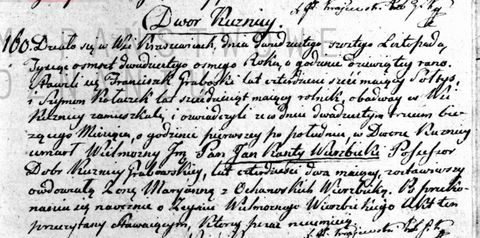 Dwor Kuznicy.
160. Działo się w Wsi Krzeczowiach, dnia dwudziestego szostego Listopada
Tysiąc osmset dwudziestego osmego Roku, o godzinie dziewiątey rano.
Stawili się Franciszek Grabowski lat czterdzieści sześć maiący Sołtys
i Szymon Kołaczek lat sześćdziesiąt maiący rolnik obadway w Wsi
Kuznicy zamieszkali, i oswiadczyli że w dniu dwudziestym trzecim bie-
żącego Miesiąca, o godzinie pierwszey po południu, w Dworze Kuznicy
umarł Wielmożny Jm Pan Jan Kanty Wierzbicki Possessor
Dobr Kuznicy Grabowskiey, lat czterdzieści dwa maiący, zostawiwszy
owdowiałą Zonę Maryannę z Wierzbicką. Po przeko-
naniu się naocznie o Zeyściu Wielmożnego Wierzbickiego Akt ten
przeczytany Stawaiącym, ktorzy pisać nieumieią.